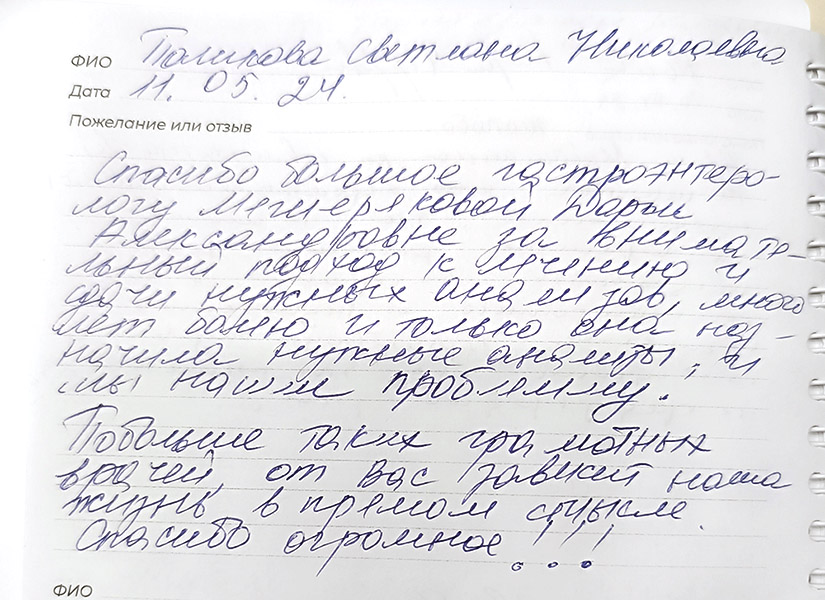 ФИО Поликова Светлана Николаевна
Дата 11.05.24.
Пожелание или отзыв
Спасибо большое гастроэнтеро-
логу Мещеряковой Дарьи
Александровне за внимате-
льный подход к лечению и
сдачи нужных анализов, много
лет болею и только она наз-
начила нужные анализы, и
мы нашли проблемму.
Побольше таких грамотных
врачей, от Вас зависит наша
жизнь в прямом смысле.
Спасибо огромное!!!
ФИО